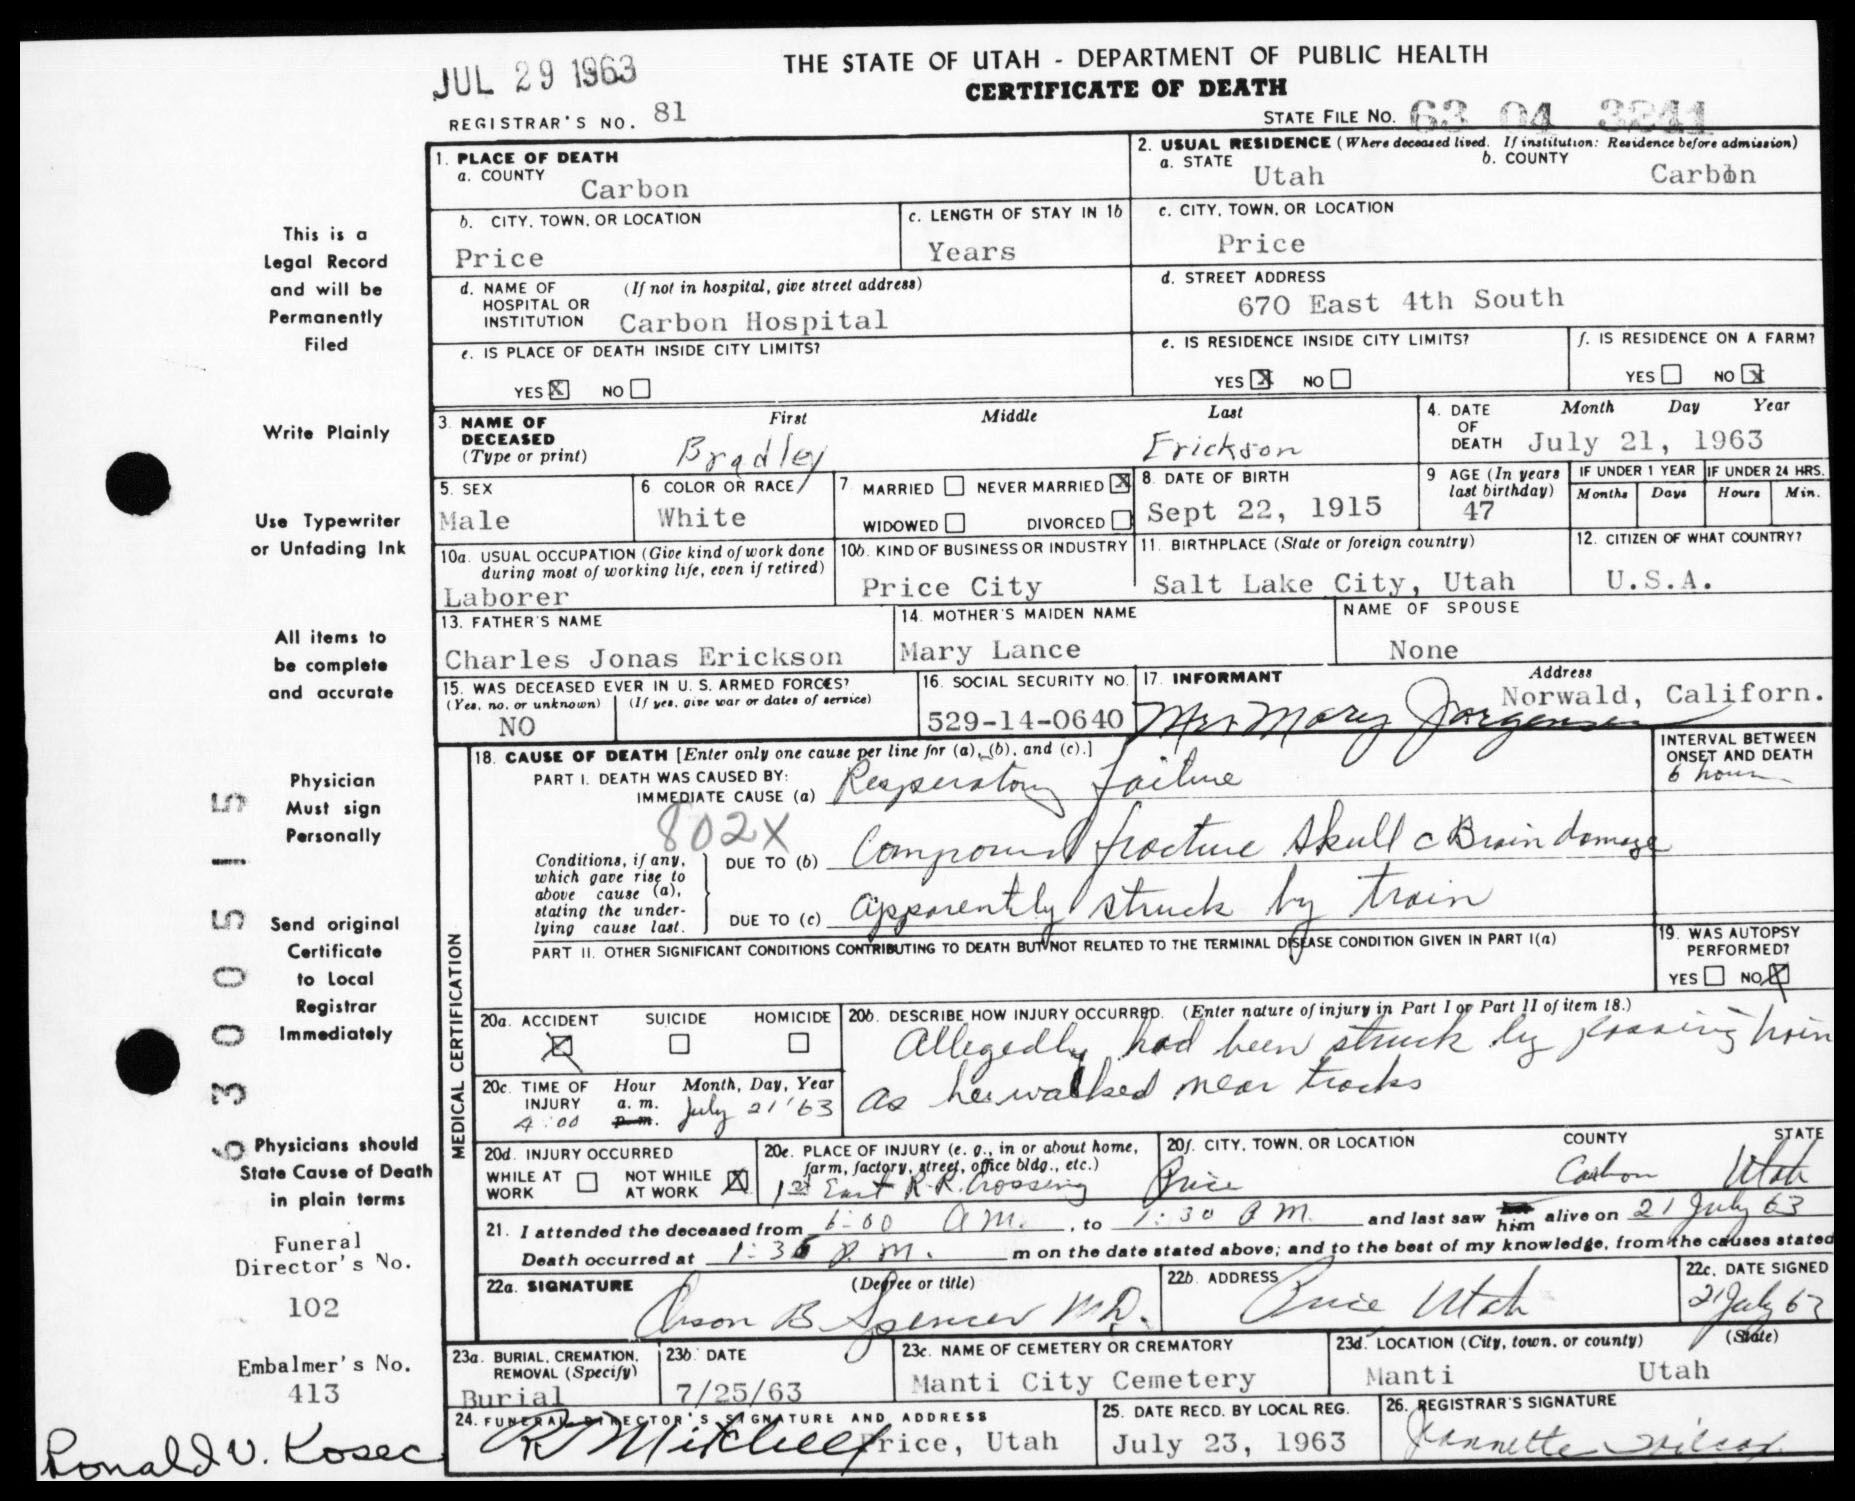 JUL 29 1963
THE STATE OF UTAH - DEPARTMENT OF PUBLIC HEALTH
CERTIFICATE OF DEATH
REGISTRAR'S NO. 81
STATE FILE NO. 63 04 3241
1. PLACE OF DEATH
a. COUNTY
Carbon
2. USUAL RESIDENCE (Where deceased lived. If institution: Residence before admission)
a. STATE Utah b. COUNTY Carbon
b. CITY, TOWN, OR LOCATION
Price
c. LENGTH OF STAY IN 1b
Years
c. CITY, TOWN, OR LOCATION
Price
d. NAME OF HOSPITAL OR INSTITUTION (If not in hospital, give street address)
Carbon Hospital
d. STREET ADDRESS
670 East 4th South
e. IS PLACE OF DEATH INSIDE CITY LIMITS?
YES X NO
e. IS RESIDENCE INSIDE CITY LIMITS?
YES X NO
f. IS RESIDENCE ON A FARM?
YES NO X
3. NAME OF DECEASED (Type or print)
First Middle Last
Bradley Erickson
4. DATE OF DEATH Month Day Year
July 21, 1963
5. SEX
Male
6 COLOR OR RACE
White
7. MARRIED NEVER MARRIED X
WIDOWED DIVORCED
8. DATE OF BIRTH
Sept 22, 1915
9 AGE (In years last birthday)
47
IF UNDER 1 YEAR
Months Days
IF UNDER 24 HRS.
Hours Min.
10a. USUAL OCCUPATION (Give kind of work done during most of working life, even if retired)
Laborer
10b. KIND OF BUSINESS OR INDUSTRY
Price City
11. BIRTHPLACE (State or foreign country)
Salt Lake City, Utah
12. CITIZEN OF WHAT COUNTRY?
U.S.A.
13. FATHER'S NAME
Charles Jonas Erickson
14. MOTHER'S MAIDEN NAME
Mary Lance
NAME OF SPOUSE
None
15. WAS DECEASED EVER IN U. S. ARMED FORCES?
(Yes, no, or unknown) (If yes, give war or dates of service)
NO
16. SOCIAL SECURITY NO.
529-14-0640
17. INFORMANT Address
Mrs Mary Jorgensen Norwald, Californ.
18. CAUSE OF DEATH [Enter only one cause per line for (a), (b), and (c).]
PART I. DEATH WAS CAUSED BY:
IMMEDIATE CAUSE (a) Respiratory failure
INTERVAL BETWEEN ONSET AND DEATH
6 hours
802X
Conditions, if any, which gave rise to above cause (a), stating the underlying cause last.
DUE TO (b) Compound fracture skull c Brain damage
DUE TO (c) apparently struck by train
PART II. OTHER SIGNIFICANT CONDITIONS CONTRIBUTING TO DEATH BUT NOT RELATED TO THE TERMINAL DISEASE CONDITION GIVEN IN PART I(a)
19. WAS AUTOPSY PERFORMED?
YES NO X
MEDICAL CERTIFICATION
20a. ACCIDENT SUICIDE HOMICIDE
X
20b. DESCRIBE HOW INJURY OCCURRED. (Enter nature of injury in Part I or Part II of item 18.)
Allegedly had been struck by passing train
as he walked near tracks
20c. TIME OF INJURY Hour Month, Day, Year
a. m.
4:00 p. m. July 21 '63
20d. INJURY OCCURRED
WHILE AT WORK NOT WHILE AT WORK X
20e. PLACE OF INJURY (e. g., in or about home, farm, factory, street, office bldg., etc.)
1st East R.R. Crossing
20f. CITY, TOWN, OR LOCATION COUNTY STATE
Price Carbon Utah
21. I attended the deceased from 6:00 A M. , to 1:30 P M. and last saw him alive on 21 July 63
Death occurred at 1:30 P.M. m on the date stated above; and to the best of my knowledge, from the causes stated
22a. SIGNATURE (Degree or title)
Orson B Spencer M.D.
22b. ADDRESS
Price Utah
22c. DATE SIGNED
21 July 63
23a. BURIAL, CREMATION, REMOVAL (Specify)
Burial
23b. DATE
7/25/63
23c. NAME OF CEMETERY OR CREMATORY
Manti City Cemetery
23d. LOCATION (City, town, or county) (State)
Manti Utah
24. FUNERAL DIRECTOR'S SIGNATURE AND ADDRESS
R Mitchell Price, Utah
25. DATE RECD. BY LOCAL REG.
July 23, 1963
26. REGISTRAR'S SIGNATURE
Jeannette Wilcox
This is a
Legal Record
and will be
Permanently
Filed
Write Plainly
Use Typewriter
or Unfading Ink
All items to
be complete
and accurate
Physician
Must sign
Personally
Send original
Certificate
to Local
Registrar
Immediately
Physicians should
State Cause of Death
in plain terms
6 3 0 0 5 1 5
Funeral
Director's No.
102
Embalmer's No.
413
Ronald V. Kosec